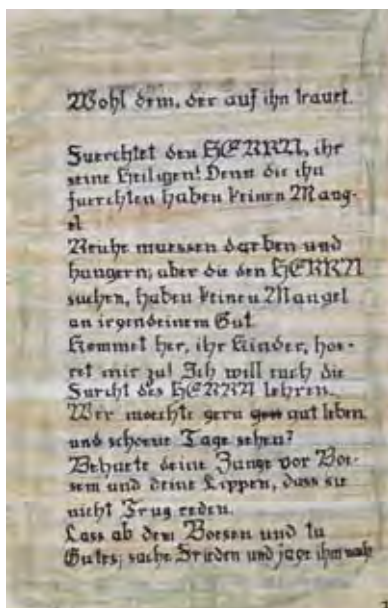 Wohl dem, der auf ihn trauet.
Fuerchtet den HERRN, ihr
seine Heiligen! Denn die ihn
fuerchten haben keinen Mang-
el
Reiche muessen darben und
hungern; aber die den HERRN
suchen, haben keinen Mangel
an irgendeinem Gut
Kommet her, ihr Kinder, hoe-
ret mir zu! Ich will euch die
Furcht des HERRN lehren.
Wer moechte gern gut leben
und schoene Tage sehen?
Behuete deine Zunge vor Boe-
sem und deine Lippen, dass sie
nicht Trug reden.
Lass ab dem Boesen und tu
Gutes; suche Frieden und jage ihm nach